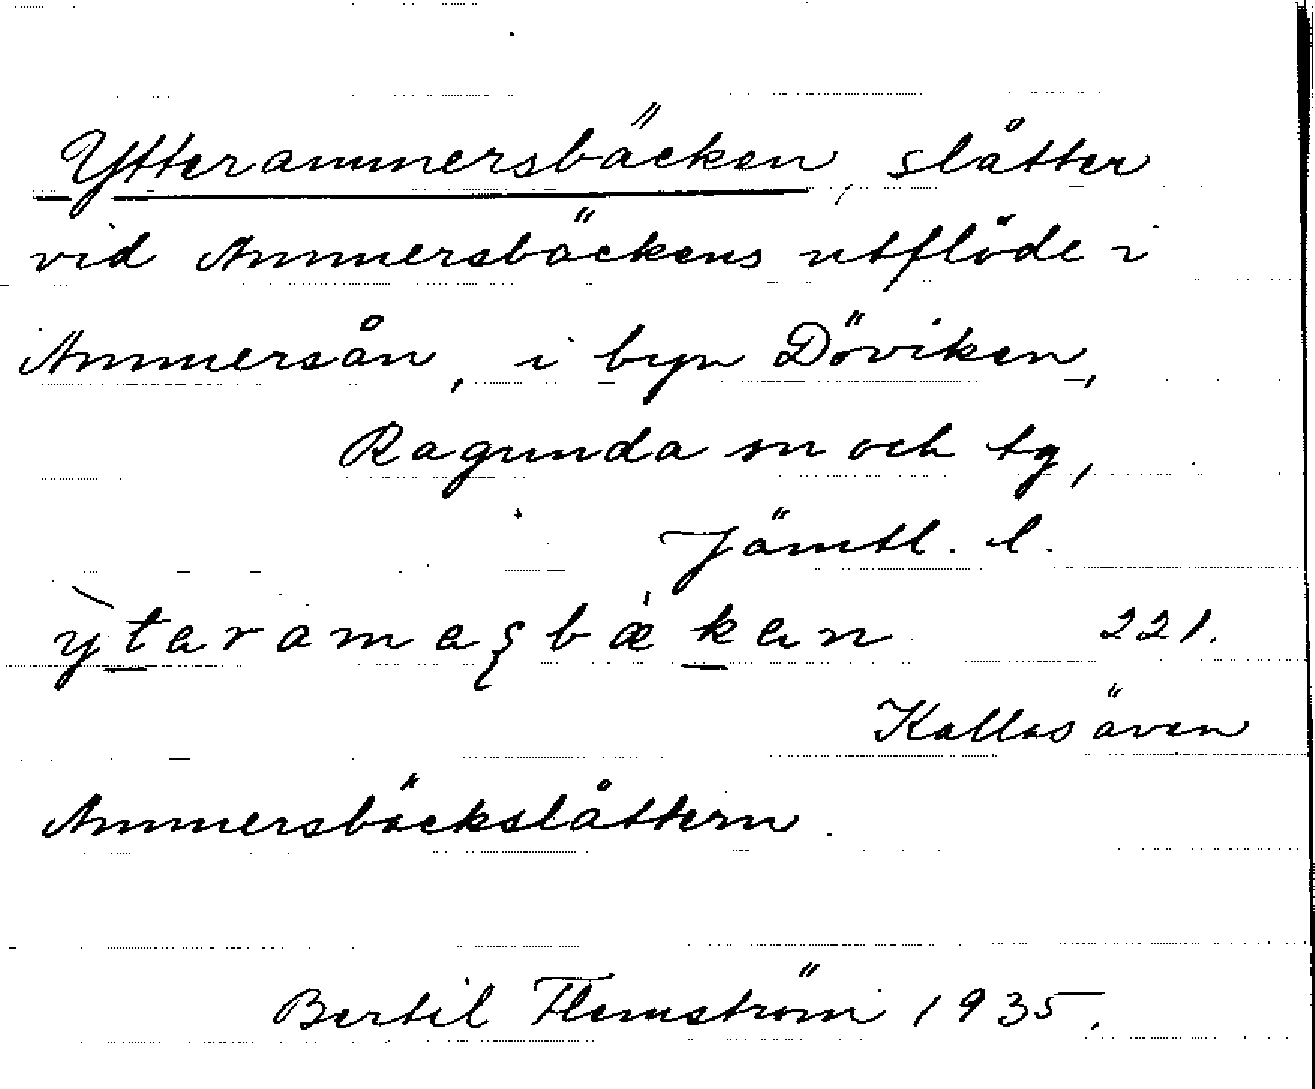 Ytterammersbäcken, slåtter
vid Ammersbäckens utflöde i
Ammersån, i byn Döviken,
Ragunda sn och tg,
Jämtl. l.
221.
Kallas även
Ammersbäckslåttern.
Bertil Flemström 1935.